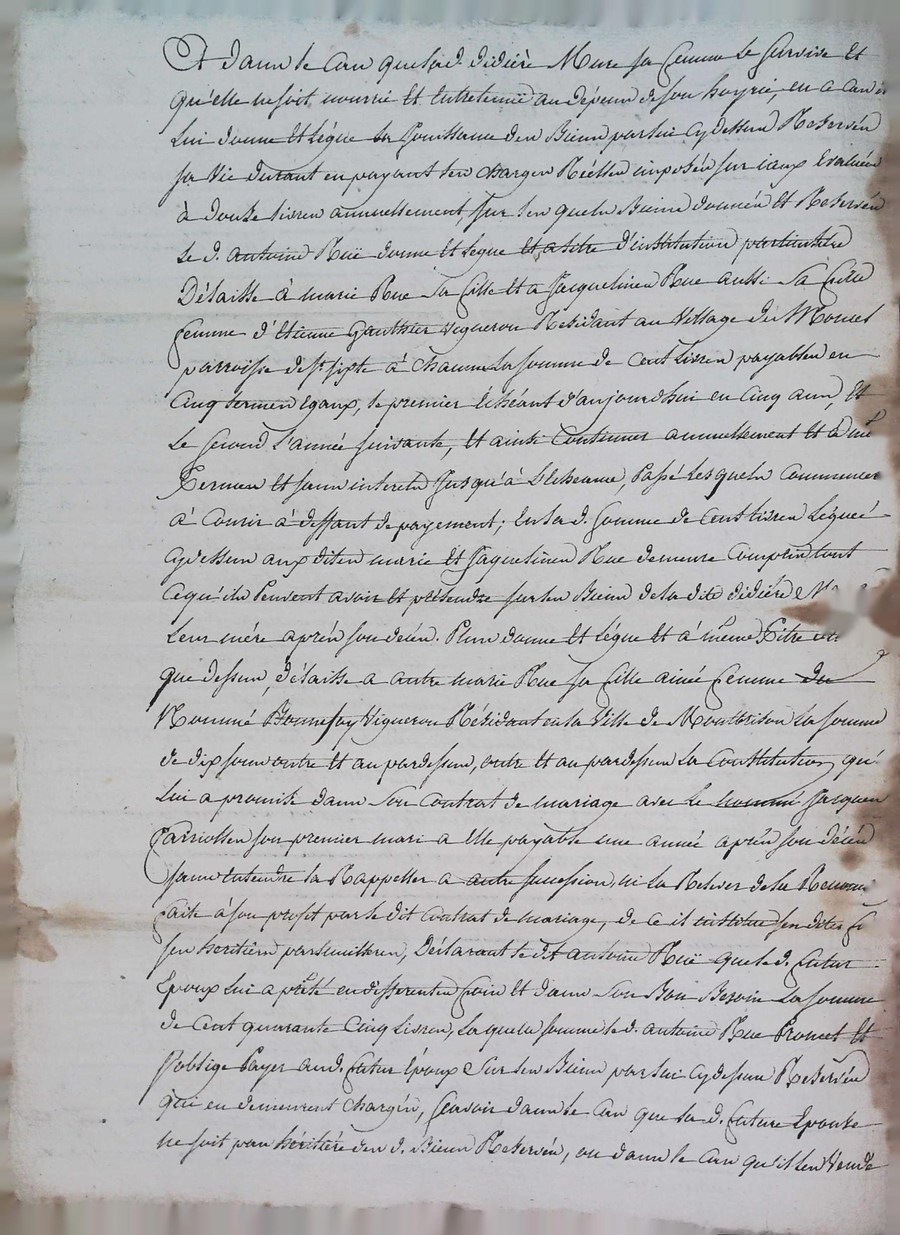 Et dans le cas que lad. didière Mure sa femme le survive et
qu'elle ne soit nourrie et entretenue au dépens de son hoyrie, en a cas
Lui donne et lègue la jouissance des Biens par lui cy dessus Réservés
sa vie durant en payant les charges Réelles imposées sur iceux Evaluées
à douze livres annuellement, sur les quels Biens donnés et Reservés
Le d. antoine Ruë donne et legue et a titre d'institution particulière
Délaisse à marie Rue sa fille et a Jacquelines Rue aussi sa fille
femme d'Etienne Gauthier vigneron Residant au village du Moncel
parroisse de st sixte à chacune la somme de cent livres payables en
cinq termes egaux, le premier Echéant d'aujourdhui en cinq ans, et
Le second l'année suivante, et ainsi continuer annuellement et à mê
Termes et sans interets jusqu'à L'Echeance, passé lesquels commencer
à courir à deffaut de payement; en la d. somme de cent livres léguée
cydessus aux dites marie et Jaquelines Rue demeure compris tout
ce qu'els Peuvent avoir et prétendre sur les Biens de la dite didière
Leur mére après son décès. Plus donne et lègue et à même titre
que dessus, délaisse a autre marie Rue sa fille ainée femme du
Nommé Bonnefoy vigneron Résidant en la ville de Montbrison la somme
de dix sous outre et au pardessus, outre et au pardessus La Constitution qu'
Lui a promise dans son contrat de mariage avec le nommé Jacques
son premier mari a elle payable une année après son décès
sans entendre la Rappeller a autre succession, ni la Relever de la
faite à son profit par le dit contrat de mariage, de ce il institue ses dites
ses heritières particulieres, Déclarant le dit antoine Ruë que le d. futur
Epoux lui a prêté en differentes fois et dans son Bon Besoin la somme
de cent quarante cinq livres, laquelle somme le d. antoine Rue Promet et
s'oblige Payer aud. futur Epoux sur les Biens par lui cydessus Reservés
qui en demeurent chargés, scavoir dans le cas que la d. future Epouse
ne soit pas héritière des d. Biens Reservés, ou dans le cas qu'il les vende